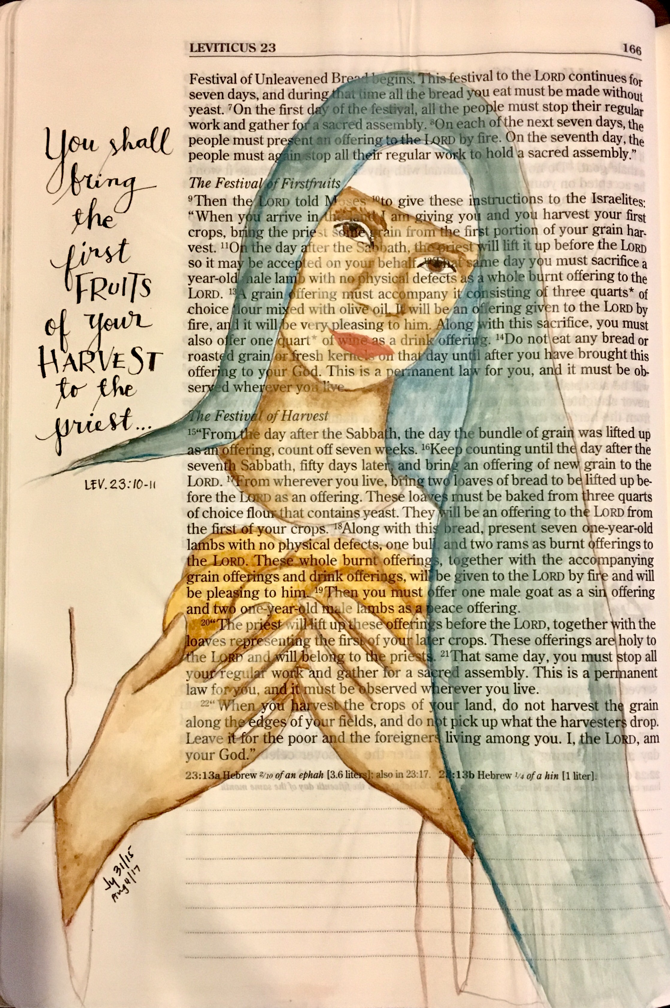 LEVITICUS 23 166
Festival of Unleavened Bread begins. This festival to the LORD continues for
seven days, and during that time all the bread you eat must be made without
yeast. ⁷On the first day of the festival, all the people must stop their regular
work and gather for a sacred assembly. ⁸On each of the next seven days, the
people must present an offering to the LORD by fire. On the seventh day, the
people must again stop all their regular work to hold a sacred assembly.”
The Festival of Firstfruits
⁹Then the LORD told Moses ¹⁰to give these instructions to the Israelites:
“When you arrive in the land I am giving you and you harvest your first
crops, bring the priest some grain from the first portion of your grain har-
vest. ¹¹On the day after the Sabbath, the priest will lift it up before the LORD
so it may be accepted on your behalf. ¹²That same day you must sacrifice a
year-old male lamb with no physical defects as a whole burnt offering to the
LORD. ¹³A grain offering must accompany it consisting of three quarts* of
choice flour mixed with olive oil. It will be an offering given to the LORD by
fire, and it will be very pleasing to him. Along with this sacrifice, you must
also offer one quart* of wine as a drink offering. ¹⁴Do not eat any bread or
roasted grain or fresh kernels on that day until after you have brought this
offering to your God. This is a permanent law for you, and it must be ob-
served wherever you live.
The Festival of Harvest
¹⁵“From the day after the Sabbath, the day the bundle of grain was lifted up
as an offering, count off seven weeks. ¹⁶Keep counting until the day after the
seventh Sabbath, fifty days later, and bring an offering of new grain to the
LORD. ¹⁷From wherever you live, bring two loaves of bread to be lifted up be-
fore the LORD as an offering. These loaves must be baked from three quarts
of choice flour that contains yeast. They will be an offering to the LORD from
the first of your crops. ¹⁸Along with this bread, present seven one-year-old
lambs with no physical defects, one bull, and two rams as burnt offerings to
the LORD. These whole burnt offerings, together with the accompanying
grain offerings and drink offerings, will be given to the LORD by fire and will
be pleasing to him. ¹⁹Then you must offer one male goat as a sin offering
and two one-year-old male lambs as a peace offering.
²⁰“The priest will lift up these offerings before the LORD, together with the
loaves representing the first of your later crops. These offerings are holy to
the LORD and will belong to the priests. ²¹That same day, you must stop all
your regular work and gather for a sacred assembly. This is a permanent
law for you, and it must be observed wherever you live.
²²“When you harvest the crops of your land, do not harvest the grain
along the edges of your fields, and do not pick up what the harvesters drop.
Leave it for the poor and the foreigners living among you. I, the LORD, am
your God.”
23:13a Hebrew 2/10 of an ephah [3.6 liters]; also in 23:17. 23:13b Hebrew 1/4 of a hin [1 liter].
You shall
bring
the
first
FRUITS
of your
HARVEST
to the
priest...
LEV. 23:10-11
Jy 31/15
Aug 4/17